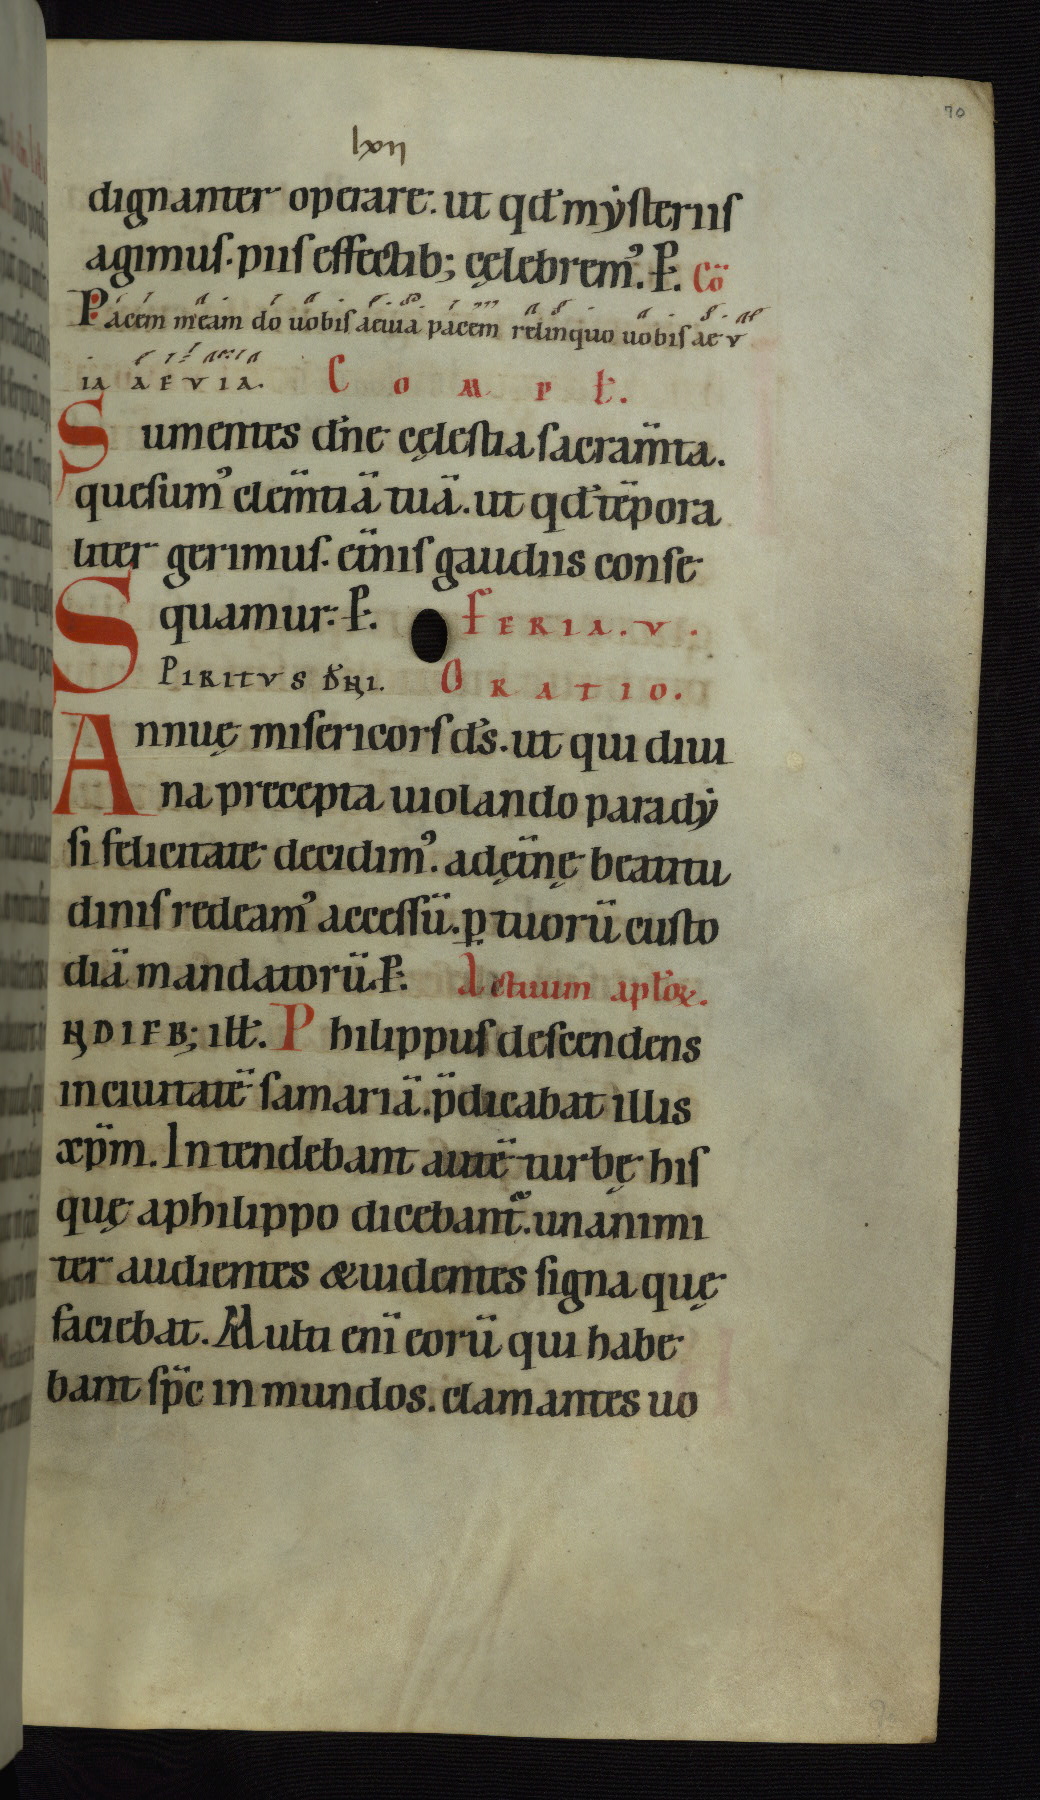 70
lxii
dignanter operare. ut qd' mẏsteriis
agimus. piis effectib; cęlebrem'. P. Cō
Pacem meam do uobis aeuia pacem relinquo uobis aev
ia aevia. Compł.
Sumentes dn̄e cęlestia sacram̄ta.
quesum' clem̄tiā tuā. ut qd' tēpora
liter gerimus. et̄nis gaudiis conse
quamur. P. Feria. v.
Spiritus dn̄i. Oratio.
Annuę misericors ds̄. ut qui diui
na precepta uiolando paradẏ
si felicitate decidim'. ad ęt̄nę beatitu
dinis redeam' accessū. ꝑ tuorū custo
diā mandatorū. P. Lectium apl'oꝝ.
Ndieb; ill'. Philippus descendens
in ciuitatē samariā. p̄dicabat illis
xp̄m. Intendebant autē turbę his
quę a philippo dicebant'. unanimi
ter audientes & uidentes signa quę
faciebat. Multi enī eorū qui habe
bant sp̄c inmundos. clamantes uo